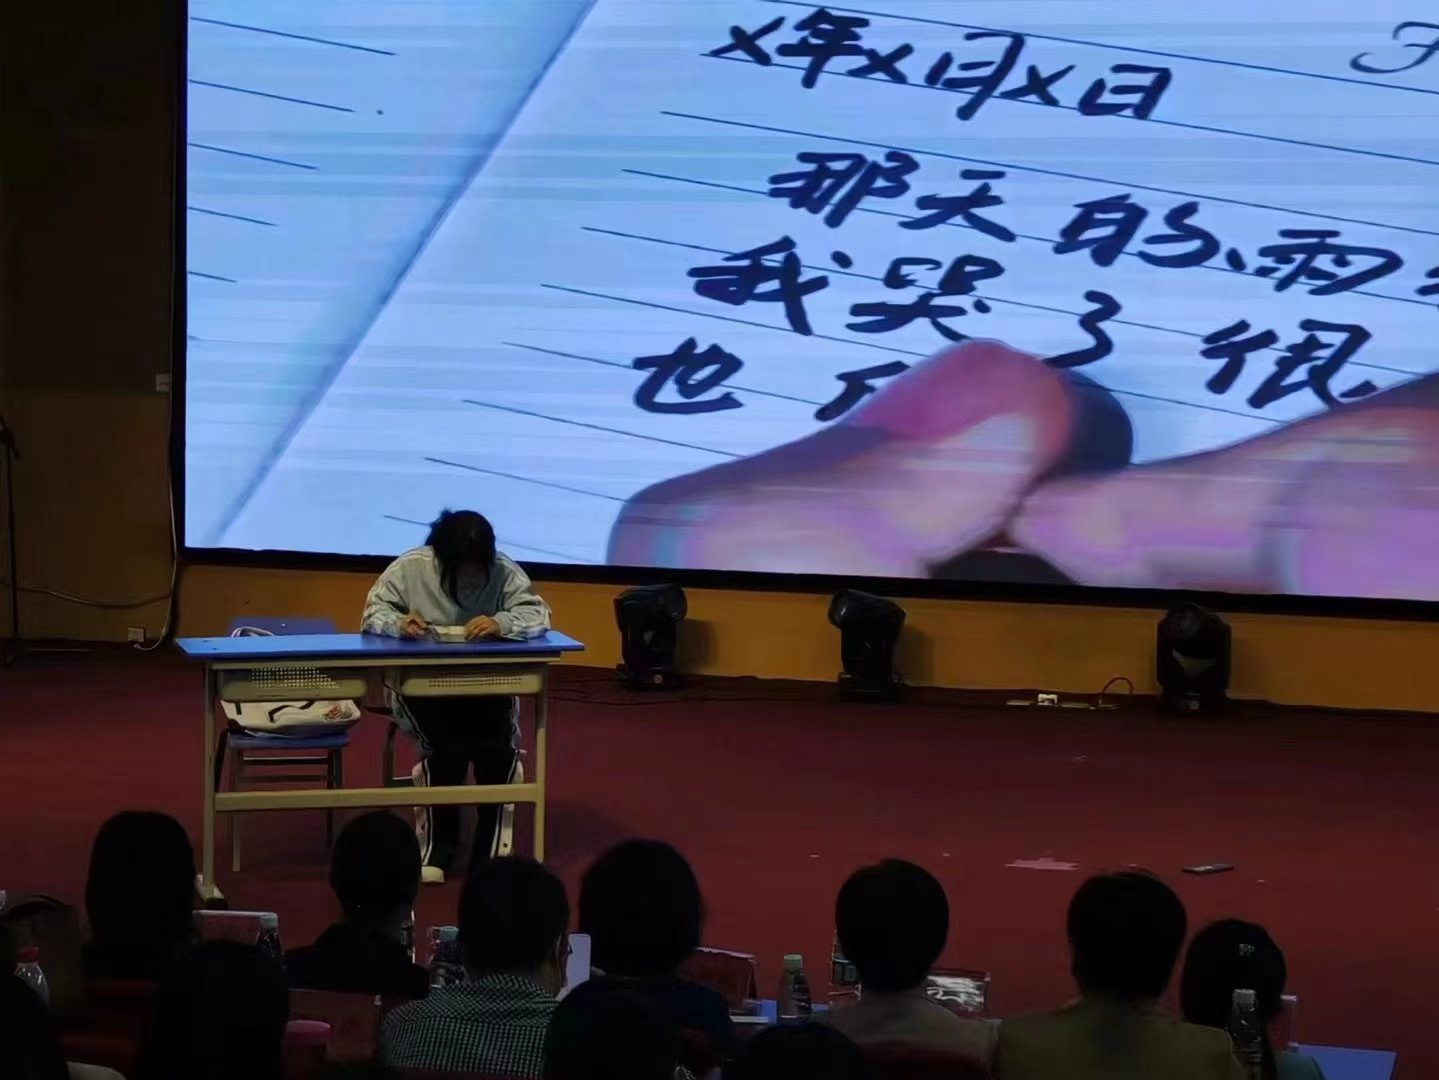 x年x月x日
那天的雨
我哭了很
也